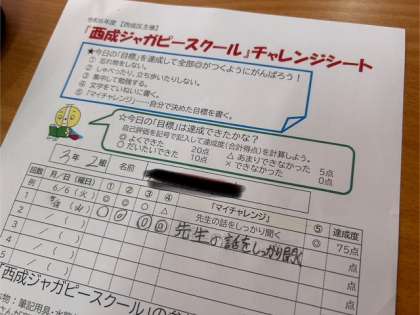 令和6年度 【西成区主催】
『西成ジャガピースクール』チャレンジシート
★今日の「目標」を達成して全部◎がつくようにがんばろう！
① 忘れ物をしない。
② しゃべったり、立ち歩いたりしない。
③ 集中して勉強する。
④ 文字をていねいに書く。
⑤ 「マイチャレンジ」……自分で決めた目標を書く。
☆今日の「目標」は達成できたかな？
自己評価を記号で記入して達成度（合計得点）を計算しよう。
◎ よくできた 20点 △ あまりできなかった 5点
○ だいたいできた 10点 × できなかった 0点
3年 2組 名前
回数 月／日（曜日） ① ② ③ ④ 『マイチャレンジ』 ⑤ 達成度
例 6/6（火） ◎ ◎ ○ △ 先生の話をしっかり聞く ◎ 75点
1 （火） ○ ◎ ◎ ◎ 先生の話をしっかり聞く 点
2 ／（ ） 点
3 ／（ ） 点
4 ／（ ） 点
5
『西成ジャガピースクール』の
物：筆記用具・水筒